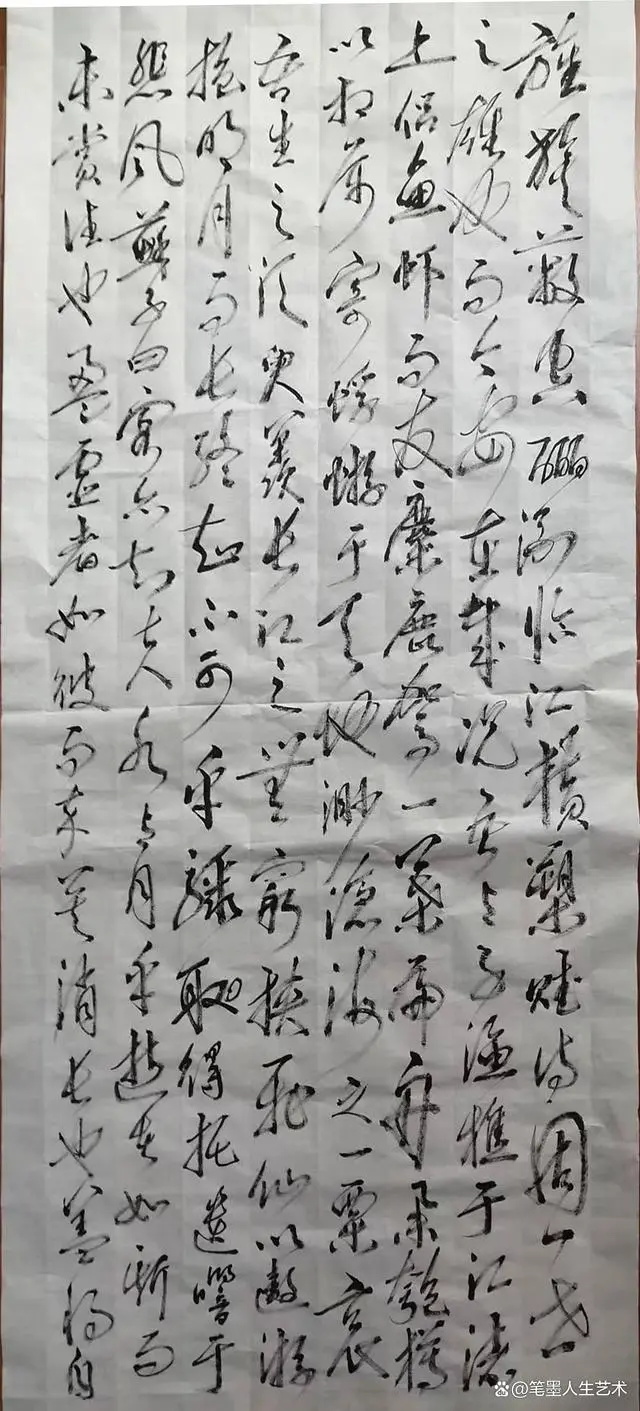 旌旗蔽空酾酒临江横槊赋诗固一世
之雄也而今安在哉况吾与子渔樵于江渚
上侣鱼虾而友麋鹿驾一葉扁舟举匏樽
以相属寄蜉蝣于天地渺滄海之一粟哀
吾生之须臾羡长江之無窮挟飛仙以遨游
抱明月而长终知不可乎驟取得托遗響于
悲风蘇子曰客亦知夫水与月乎逝者如斯而
未尝往也盈虚者如彼而卒莫消长也盖将自
笔墨人生艺术